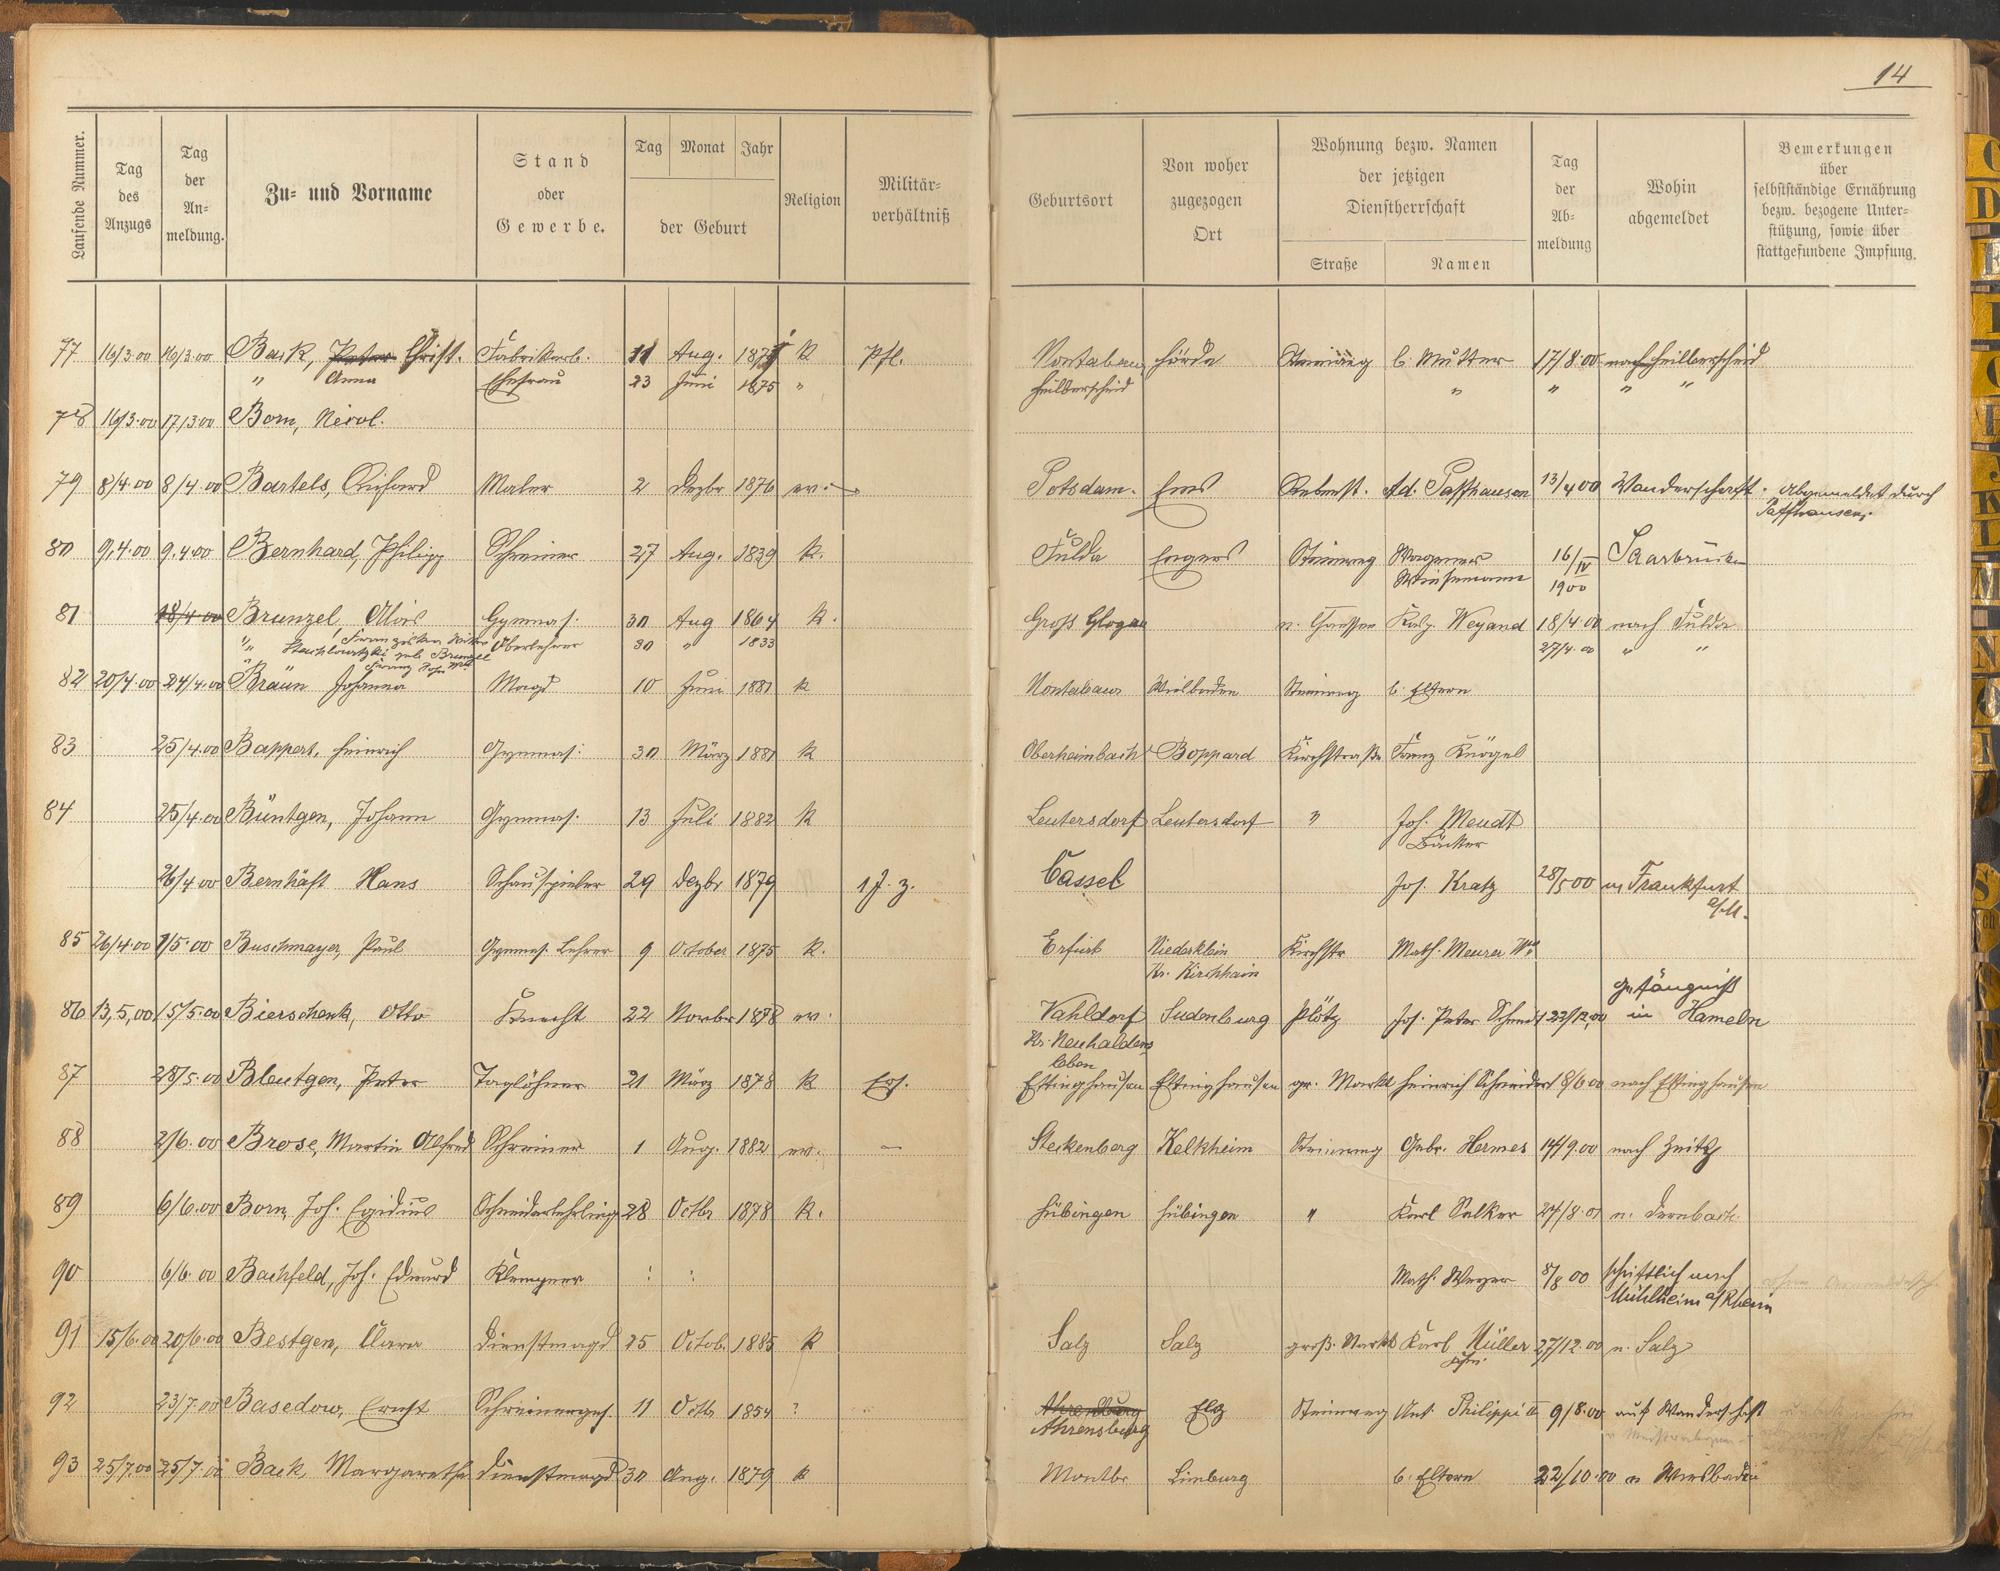 14
Laufende Nummer.
Tag des Anzugs
Tag der Anmeldung.
Zu- und Vorname
Stand oder Gewerbe.
Tag Monat Jahr
der Geburt
Religion
Militär-verhältniß
Geburtsort
Von woher zugezogen Ort
Wohnung bezw. Namen der jetzigen Dienstherrschaft
Straße Namen
Tag der Ab-meldung
Wohin abgemeldet
Bemerkungen über selbstständige Ernährung bezw. bezogene Unter-stützung, sowie über stattgefundene Impfung.
77 16/3.00 16/3.00 Back, Peter Christ. Fabrikarb. 11 Aug. K Pfl. Montabaur Hörde Steinweg b. Mutter 17/8.00 nach Heilberscheid
" Anna Ehefrau 23 Juni 1875 " Heilberscheid " " " "
78 16/3.00 17/3.00 Born, Nicol.
79 8/4.00 8/4.00 Bartels, Richard Maler 2 Dezbr 1876 ev. — Potsdam. Ems Rebenst. Ad. Paffhausen 13/4 00 Wanderschaft. abgemeldet durch
Paffhausen.
80 9.4.00 9.4.00 Bernhard, Philipp Schreiner 27 Aug. 1839 K. Fulda Engers Steinweg Wagner 16/IV Saarbrücken
Wiesemann 1900
81 18/4.00 Brunzel Alois Gymnas. 30 Aug 1864 K. Groß Glogau n. Kasp. Weyand 18/4.00 nach Fulda
" Franziska Oberlehrer 30 " 1833 27/4.00 " "
geb. Brunzel
82 20/4.00 24/4.00 Braun Johanna Magd 10 Juni 1881 K Montabaur Wiesbaden Steinweg b. Eltern
83 25/4.00 Bappert, Heinrich Gymnas. 30 März 1881 K Oberheimbach Boppard Kirchstraße Franz Knögel
84 25/4.00 Büntgen, Johann Gymnas. 13 Juli 1882 K Leutersdorf Leutersdorf " Joh. Meudt
Bäcker
26/4 00 Bernhäft Hans Schauspieler 29 Dezbr 1879 1 J. z. Cassel Jos. Kratz 28/5 00 n. Frankfurt
a/M.
85 26/4.00 1/5.00 Buschmayer, Paul Gymnas. Lehrer 9 October 1875 K. Erfurt Niederklein Kirchstr Math. Meurer Ww
Kr. Kirchhain
Gefängniß
86 13,5,00 15/5.00 Bierschenk, Otto Knecht 22 Novbr 1878 ev. Vahldorf Sudenburg Plötz Joh. Peter Schmidt 22/12.00 in Hameln
Kr. Neuhaldens
leben
87 28/5.00 Bleutgen, Peter Taglöhner 21 März 1878 K Ers. Ettinghausen Ettinghausen gr. Markt Heinrich Schneider 18/6 00 nach Ettinghausen
88 2/6.00 Brose, Martin Alfred Schreiner 1 Aug. 1882 ev. — Steckenberg Kelkheim Steinweg Gebr. Hermes 14/9.00 nach Zeitz
89 6/6.00 Born, Joh. Egidius Schneiderlehrling 28 Octbr 1878 K. Hübingen Hübingen " Karl Salker n. Dernbach
90 6/6.00 Bachfeld, Joh. Eduard Klempner Math. Weyer 8/8 00 schriftlich nach
Mühlheim a/Rhein
91 15/6.00 20/6.00 Bestgen, Clara Dienstmagd 25 Octob. 1885 K Salz Salz groß. Markt Karl Müller 27/12.00 n. Salz
92 23/7.00 Basedow, Ernst Schreinerges. 11 Octb 1854 ? Ahrensburg Elz Steinweg Ant. Philippi II 9/8.00 auf Wanderschaft
Ahrensburg
93 25/7.00 25/7.00 Back, Margaretha Dienstmagd 30 Aug. 1879 K Montbr Limburg b. Eltern 22/10.00 n Wiesbaden